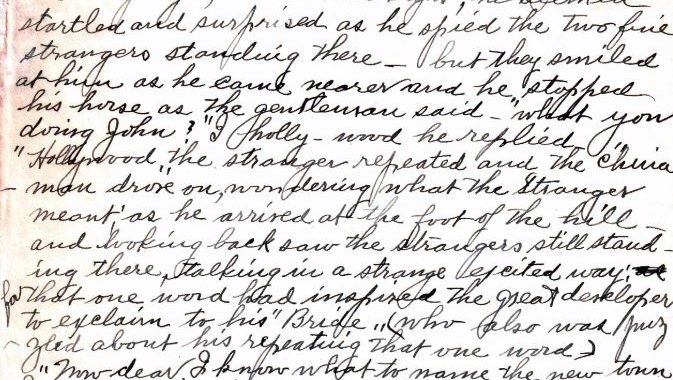 startled and surprised as he spied the two fine
strangers standing there — but they smiled
at him as he came nearer and he stopped
his horse as the gentleman said — "what you
doing John? "I holly - wood he replied
"Hollywood," the stranger repeated and the China
- man drove on, wondering what the stranger
meant, as he arrived at the foot of the hill —
and looking back saw the strangers still stand -
ing there, talking in a strange excited way;
for that one word had inspired the great developer
to exclaim to his "Bride", (who also was puz
- zled about his repeating that one word)
"Now dear, I know what to name the new town